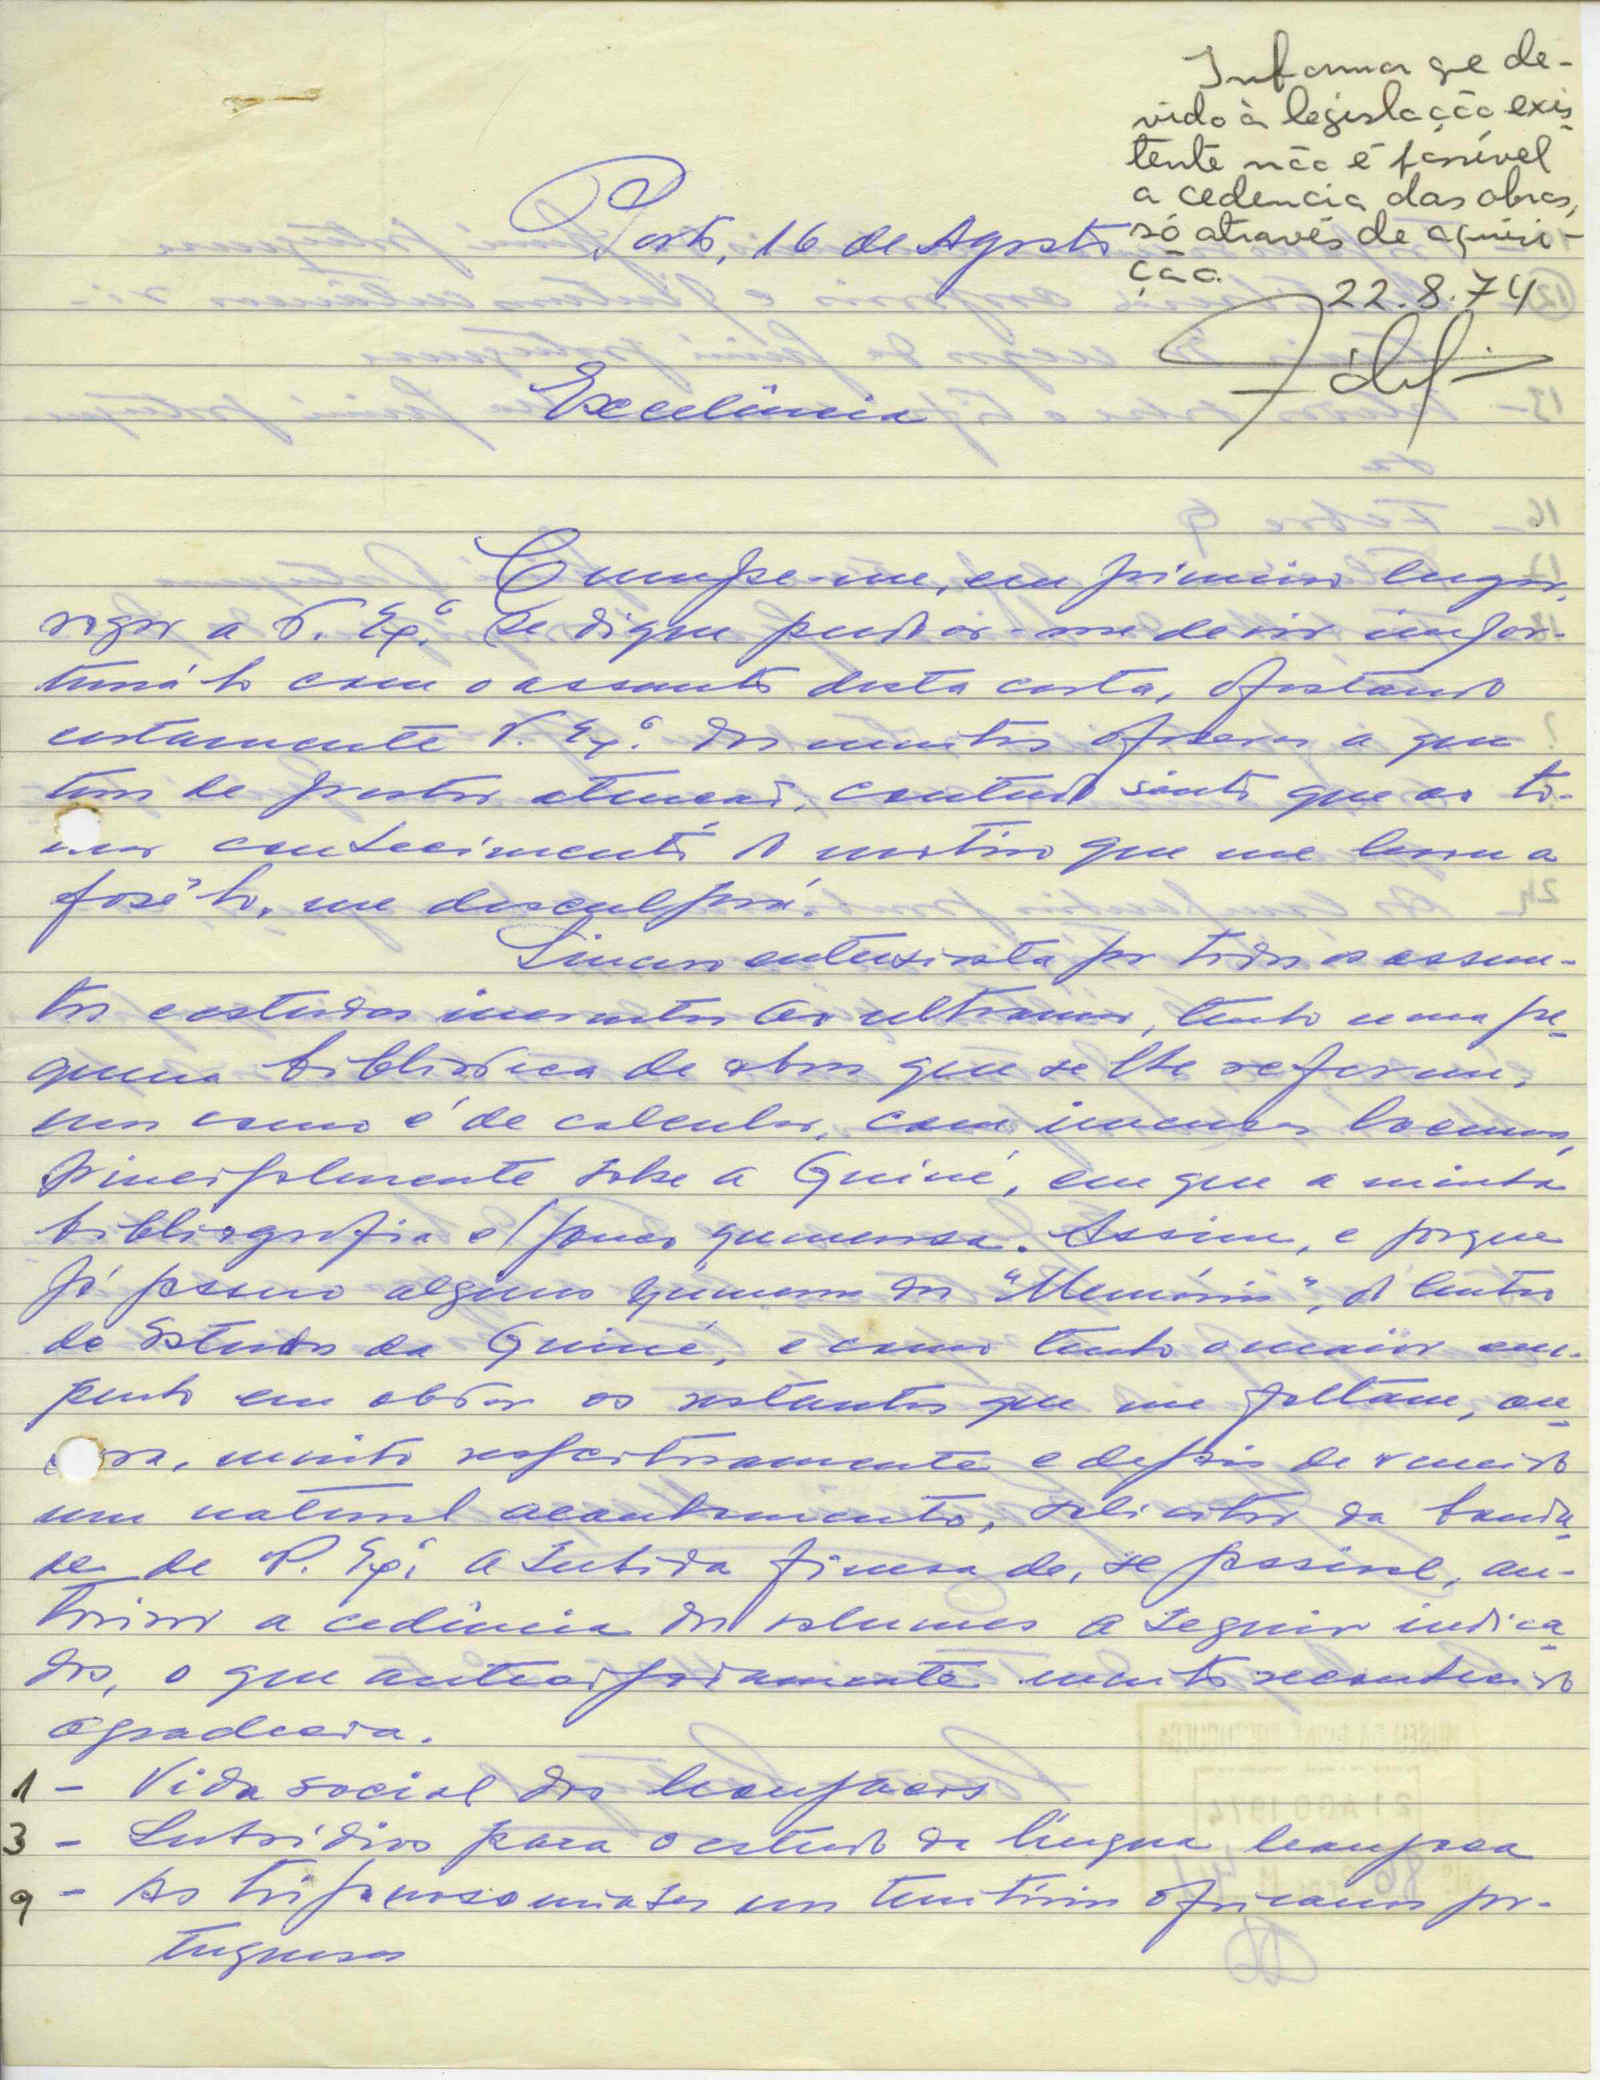 Informar que de-
vido à legislação exis-
tente não é possível
a cedencia das obras,
só através de aquisi-
ção.
22.8.74
Porto, 16 de Agosto
Excelência
Cumpre-me, em primeiro lugar,
rogar a V. Exª. se digne perdoar-me de vir impor-
tuná-lo com o assunto desta carta, afastando
certamente V. Exª. dos muitos afazeres a que
tem de prestar atenção, contudo sinto que ao to-
mar conhecimento do motivo que me levou a
fazê-lo, me desculpará.
Sincero entusiasta por todos os assun-
tos e estudos inerentes ao ultramar, tenho uma pe-
quena biblioteca de obras que se lhe referem,
mas como é de calcular, com imensas lacunas,
principalmente sobre a Guiné, em que a minha
bibliografia é pouco numerosa. Assim, e porque
já possuo alguns números das "Memórias", do Centro
de Estudos da Guiné, e como tenho o maior em-
penho em obter os restantes que me faltam, ou-
sara, muito respeitosamente e depois de vencido
um natural acanhamento, solicitar da bonda-
de de V. Exª. a subida fineza de, se possível, au-
torizar a cedência dos volumes a seguir indica-
dos, o que antecipadamente muito reconhecido
agradecia.
1 - Vida social dos Manjacos
3 - Subsídios para o estudo da língua Manjaca
9 - As tripanosomiases nos territórios africanos por-
tugueses
MUSEU DA GUINÉ PORTUGUESA
21 AGO 1974